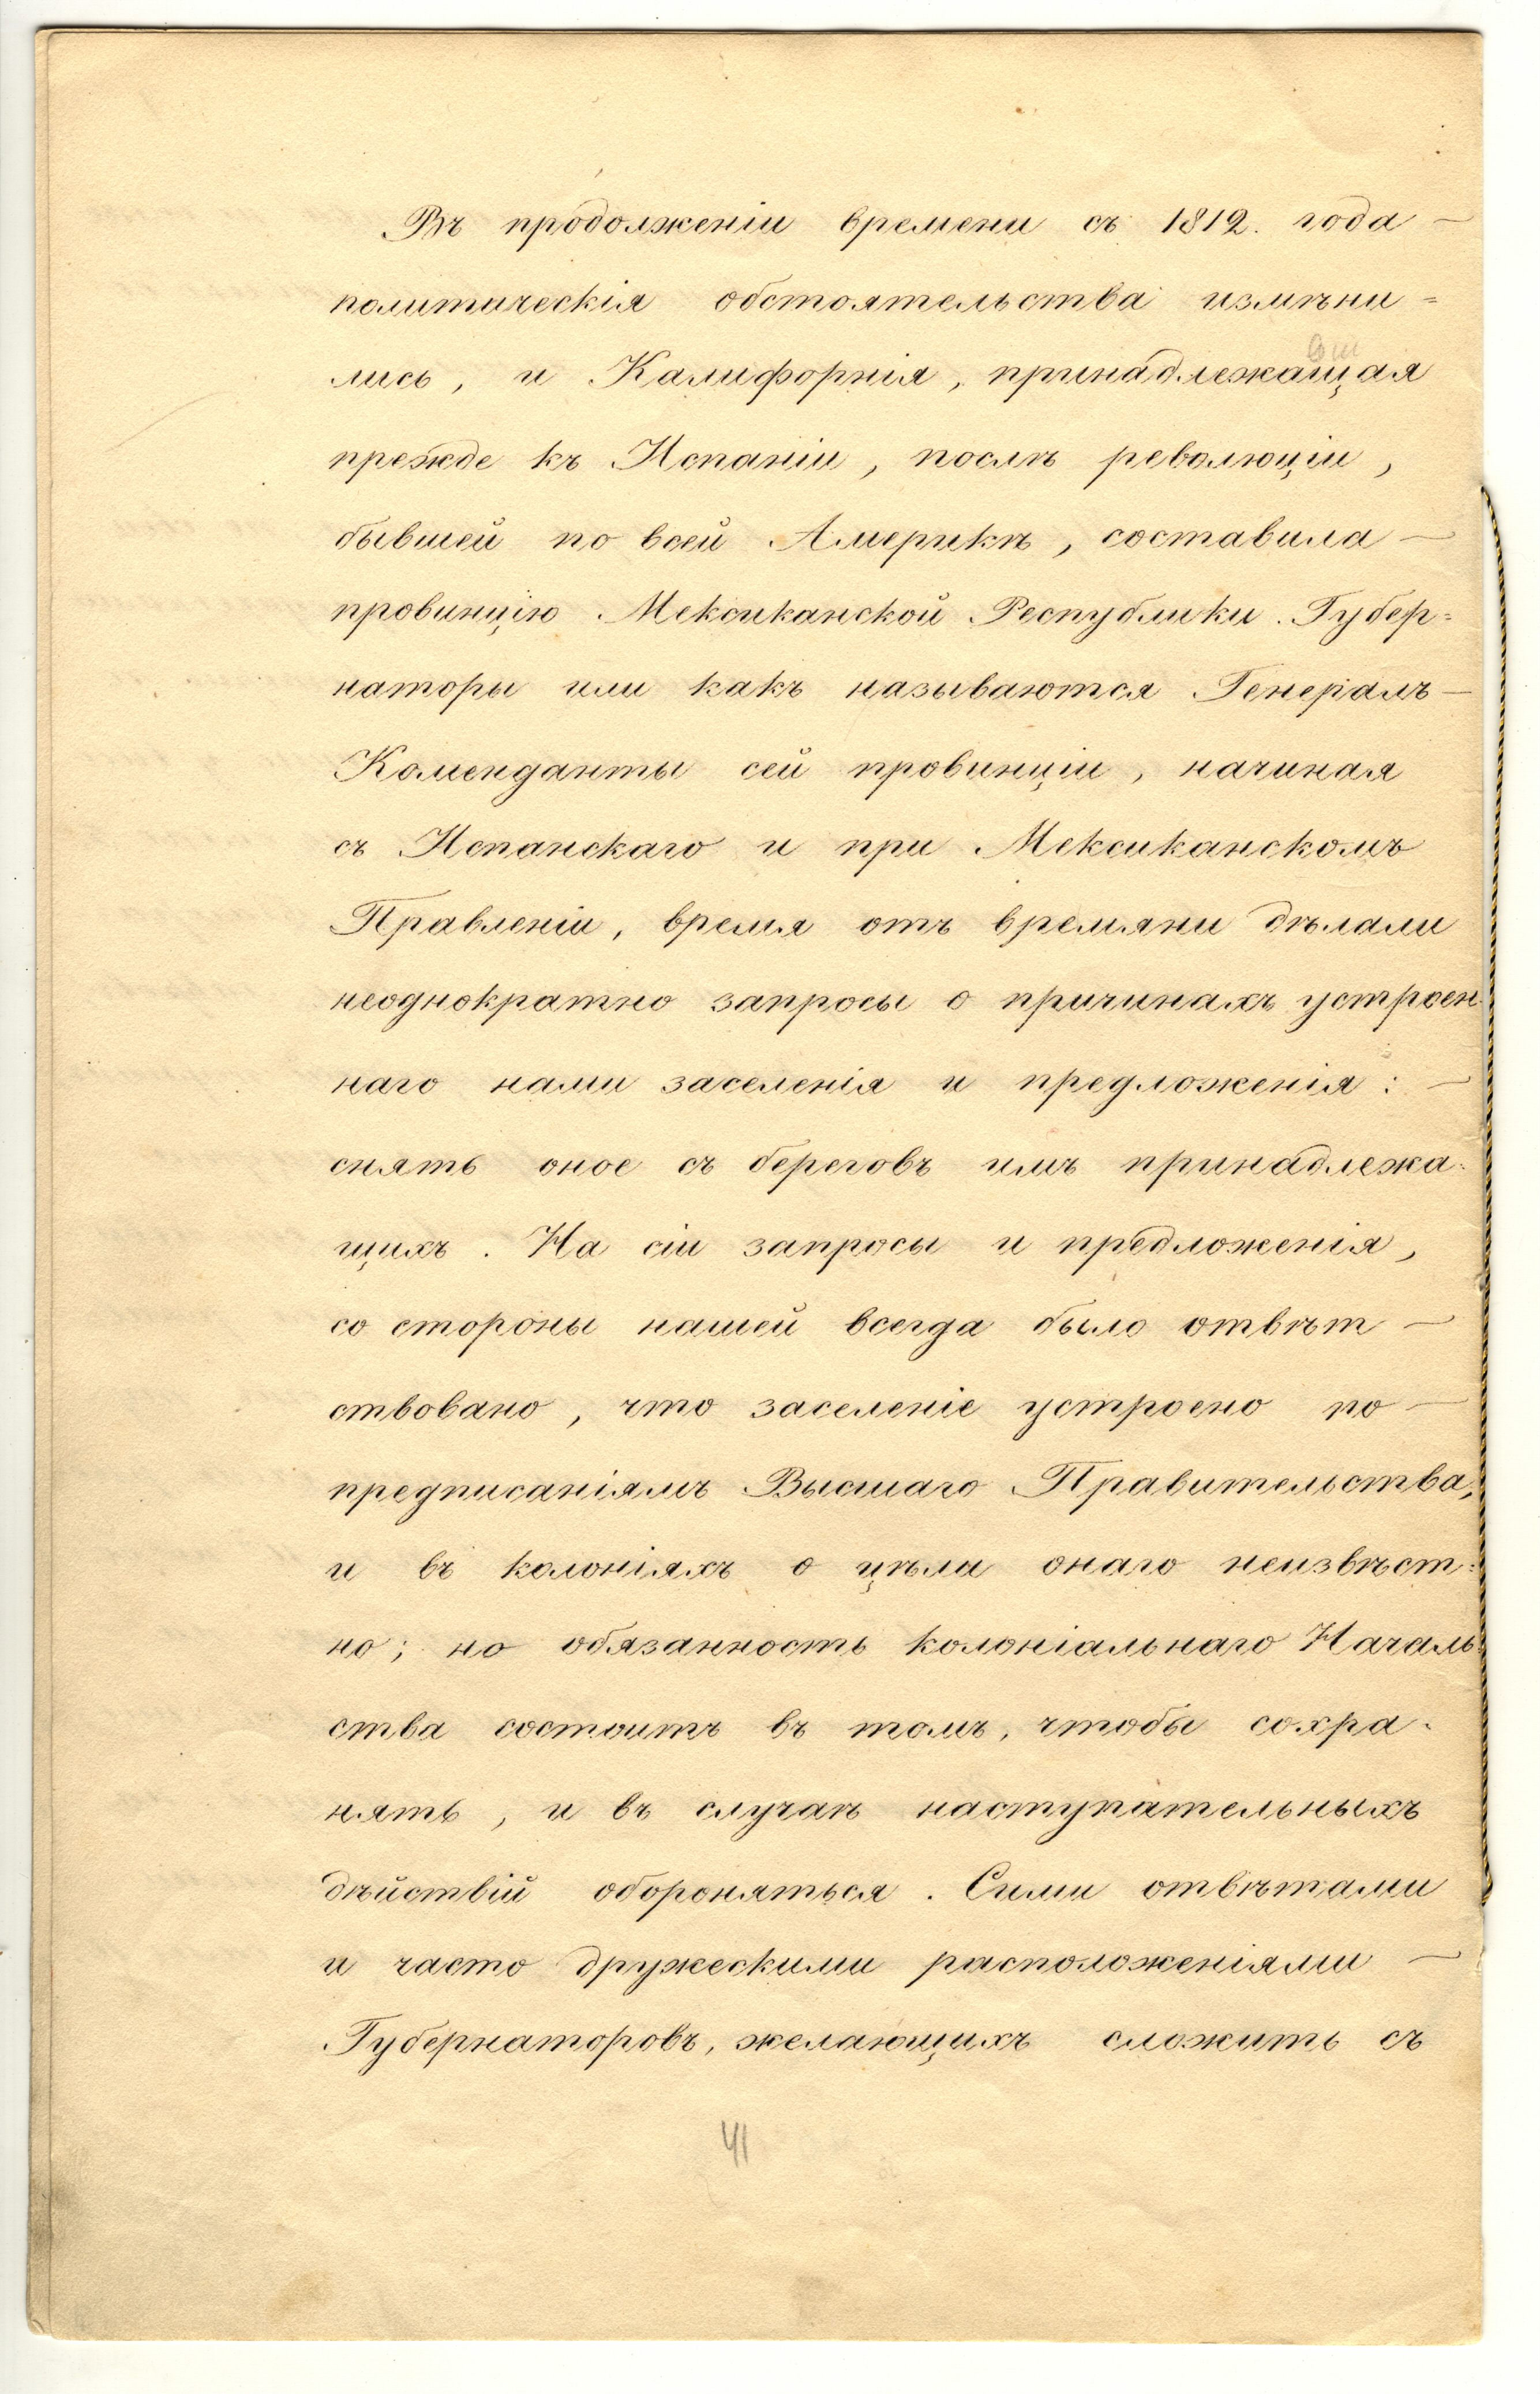 Въ продолженіи времени съ 1812. года —
политическія обстоятельства измѣни=
лись, и Калифорнія, принадлежащая
прежде къ Испаніи, послѣ революціи,
бывшей по всей Америкѣ, составила —
провинцію Мексиканской Республики. Губер=
наторы или какъ называются Генералъ —
Коменданты сей провинціи, начиная
съ Испанскаго и при Мексиканскомъ
Правленіи, время отъ времяни дѣлали
неоднократно запросы о причинахъ устроен=
наго нами заселенія и предложенія: —
снять оное съ береговъ имъ принадлежа=
щихъ. На сіи запросы и предложенія,
со стороны нашей всегда было отвѣт —
ствовано, что заселеніе устроено по —
предписаніямъ Высшаго Правительства,
и въ колоніяхъ о цѣла онаго неизвѣст=
но; но обязанность колоніальнаго Началь=
ства состоитъ въ томъ, чтобы сохра=
нять, и въ случаѣ наступательныхъ
дѣйствій обороняться. Сими отвѣтами
и часто дружескими расположеніями —
Губернаторовъ, желающихъ сложить съ
41